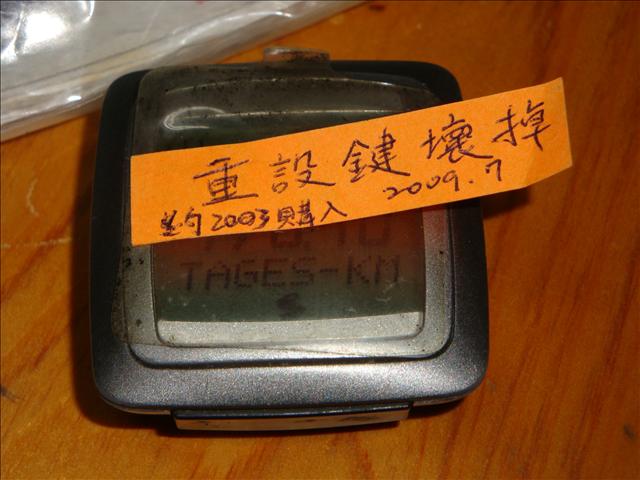 重設鍵壞掉
約2003購入 2009.7
TAGES-KM